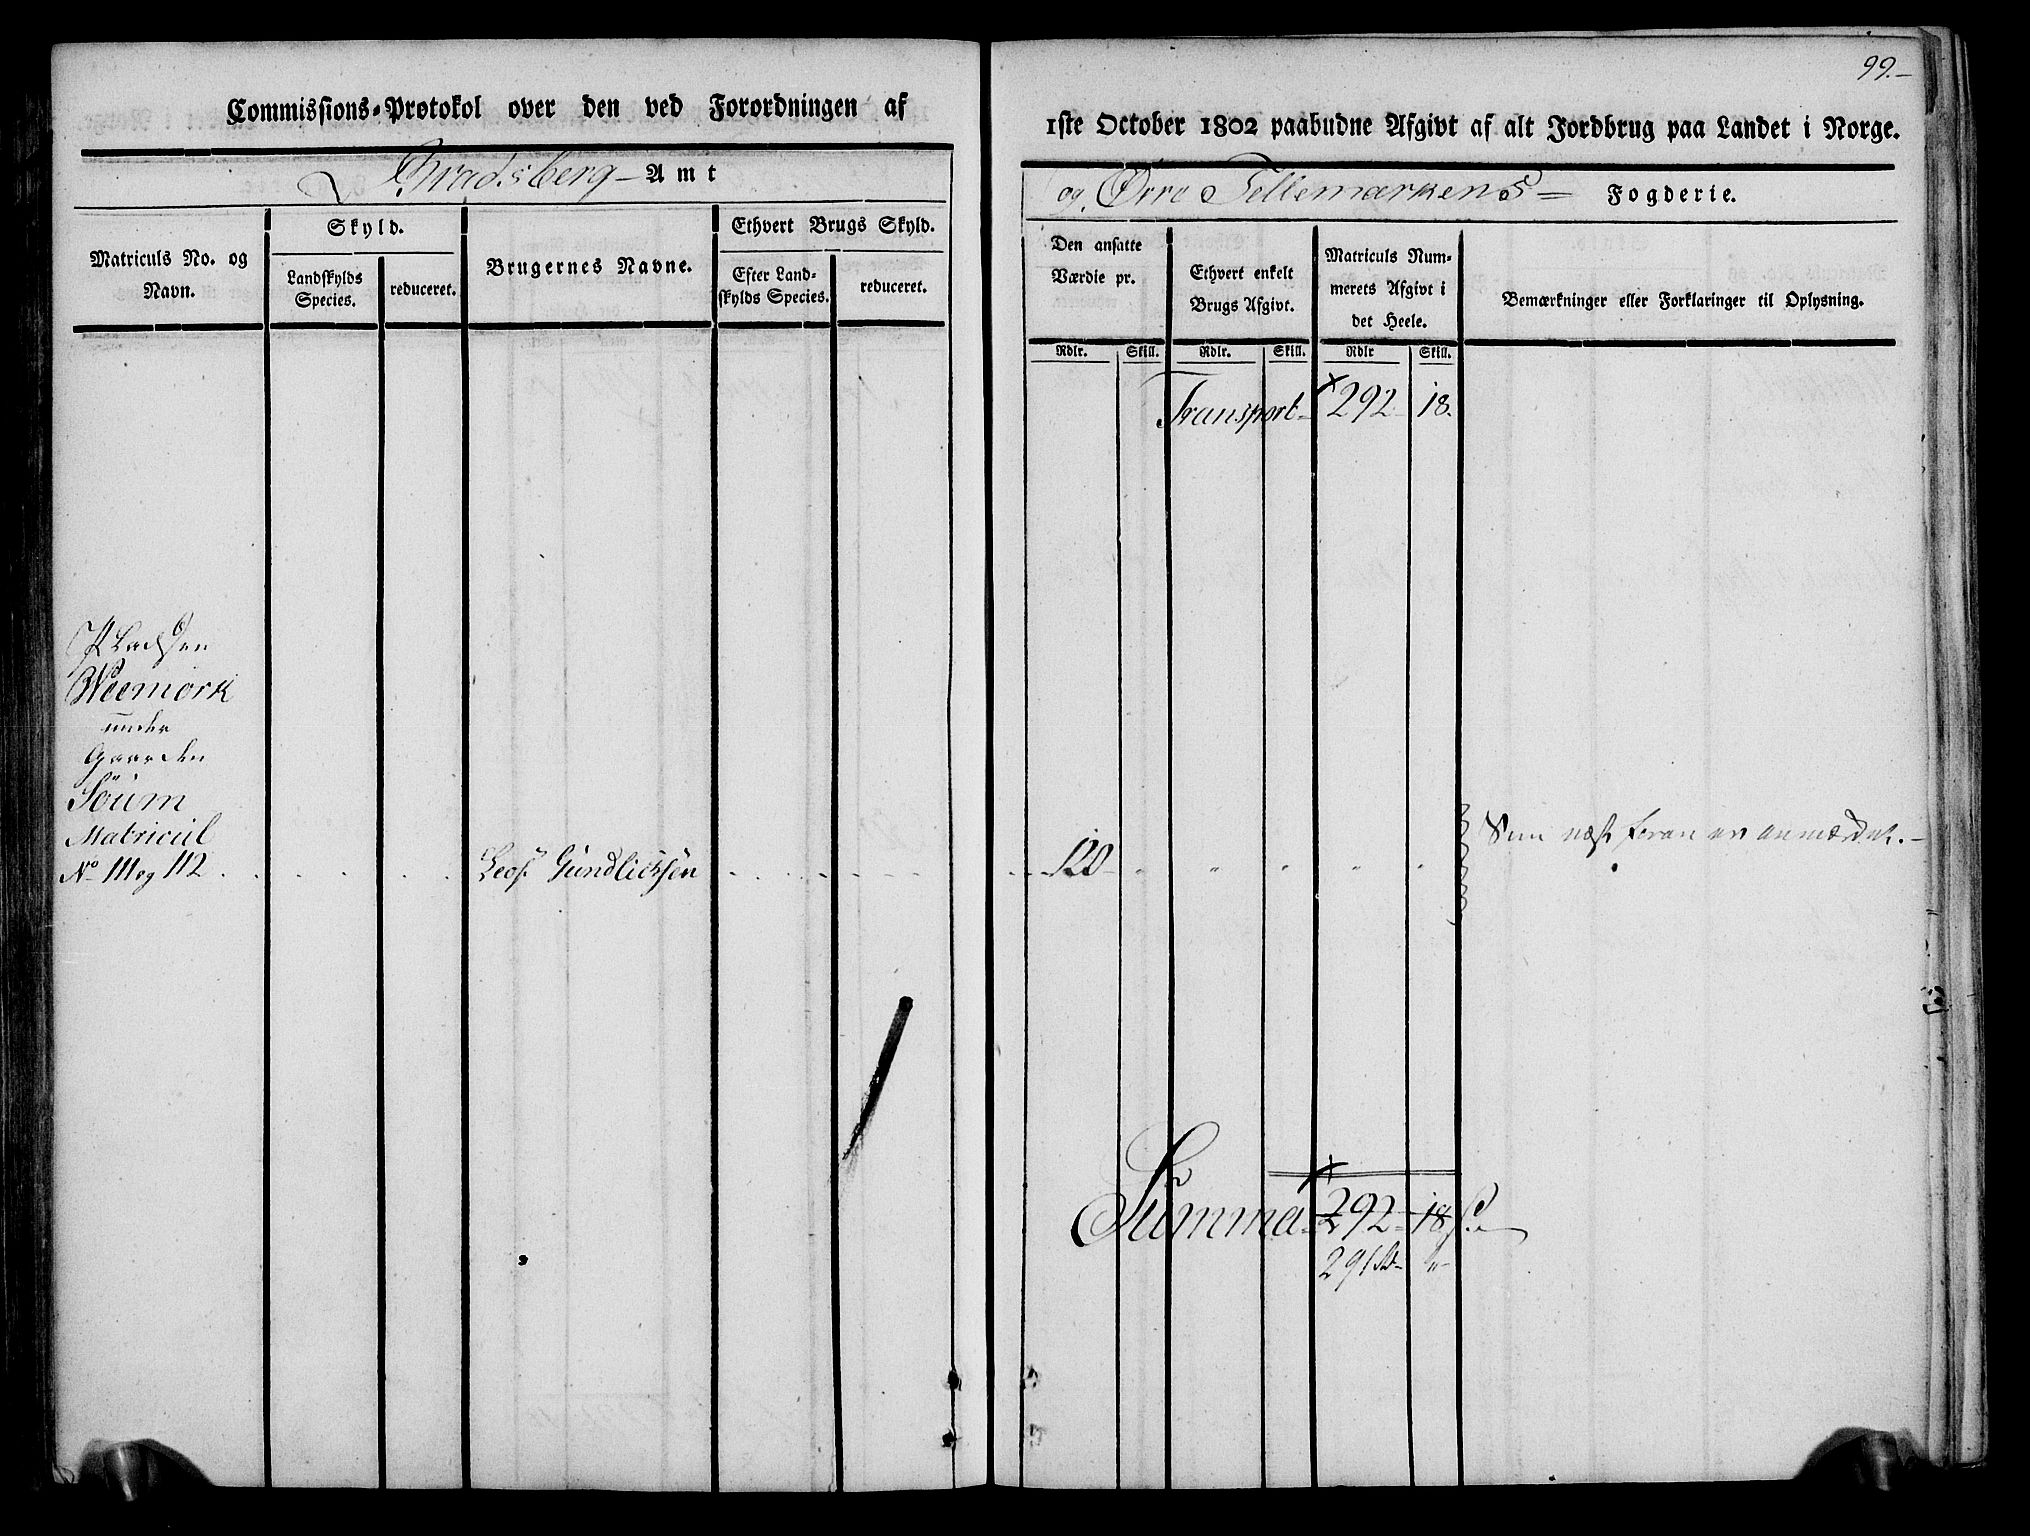 99.-
Commissions-Protokol over den ved Forordningen af
1ste October 1802 paabudne Afgivt af alt Jordbrug paa Landet i Norge.
Bradsberg Amt
og Øvre Tellemarkens Fogderie.
Matriculs No. og Navn.
Skyld.
Landskylds Species.
reduceret.
Brugernes Navne.
Ethvert Brugs Skyld.
Efter Landskylds Species.
reduceret.
Den ansatte Værdie pr.
Ethvert enkelt Brugs Afgivt.
Matriculs Nummerets Afgivt i det Heele.
Bemærkninger eller Forklaringer til Oplysning.
Rdlr. Skill. Rdlr. Skill. Rdlr Skill.
Transport 292 18.
Pladsen
Weemork
under
Gaarden
Söum
Matricul
No 111 og 112 Leof Gundlichsen 120 " " " " "
Som næst foran er anmærket.
Summa 292 18 s.
291